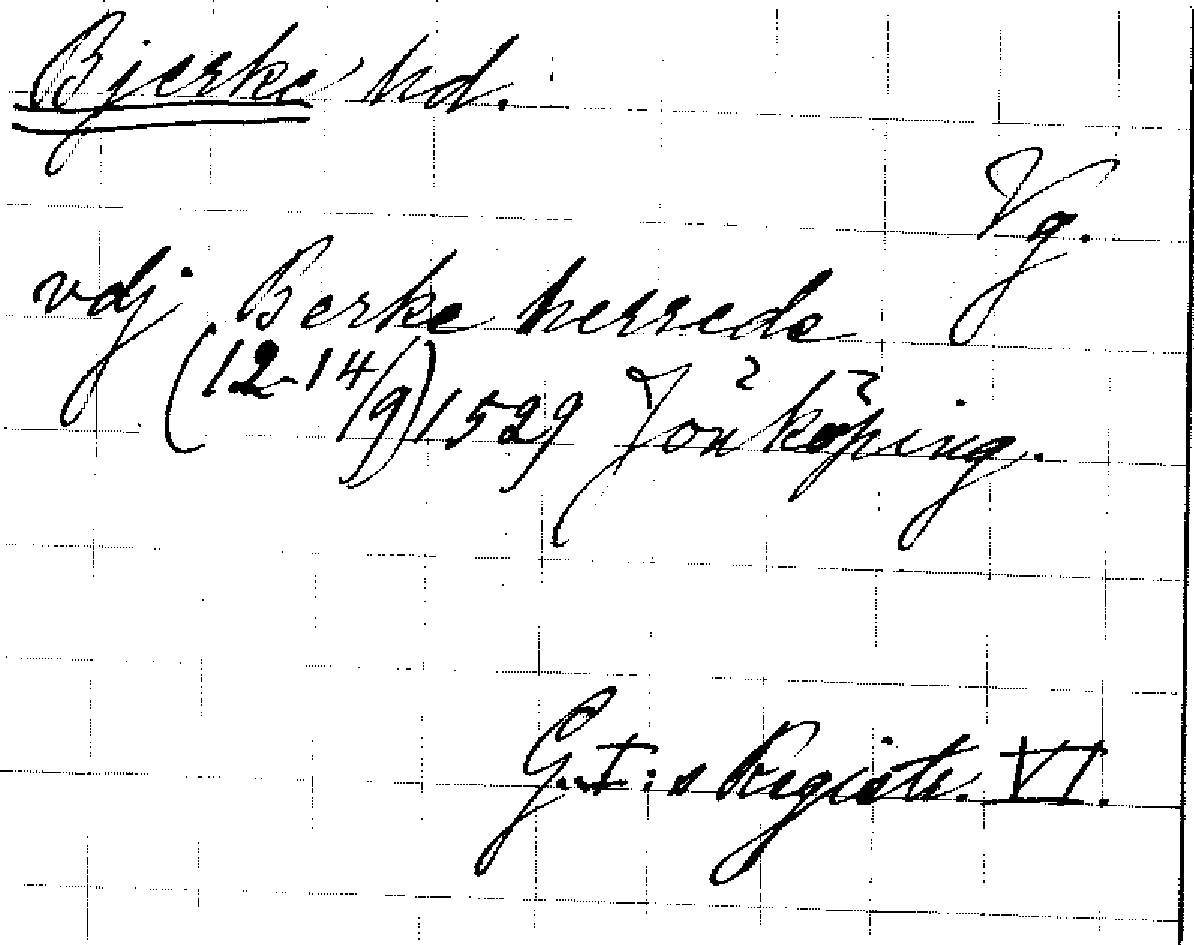 Bjerke hd.
Vg.
vdj Berke herrede
(12-14/9) 1529 Jönköping.
G. I:s Registr. VI.